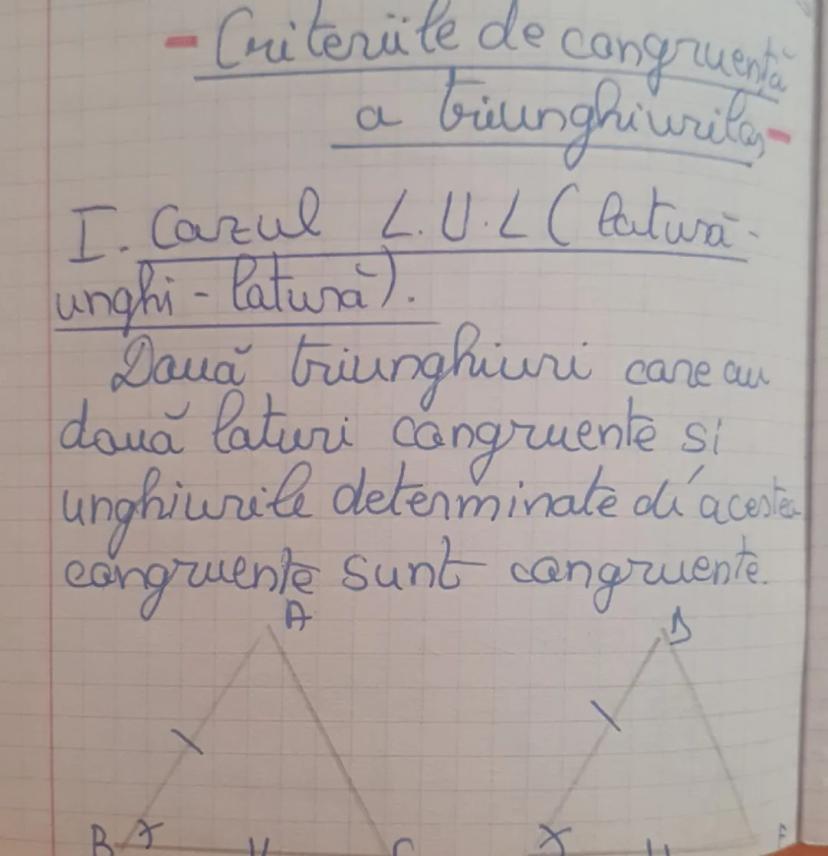 - Criteriile de congruență
a triunghiurilor -
I. Cazul L.U.L (latură-
unghi - latură).
Două triunghiuri care au
două laturi congruente si
unghiurile determinate di acestea
congruente sunt congruente.
A D
B C F